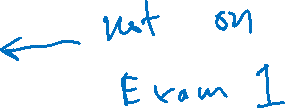 not on
Exam 1